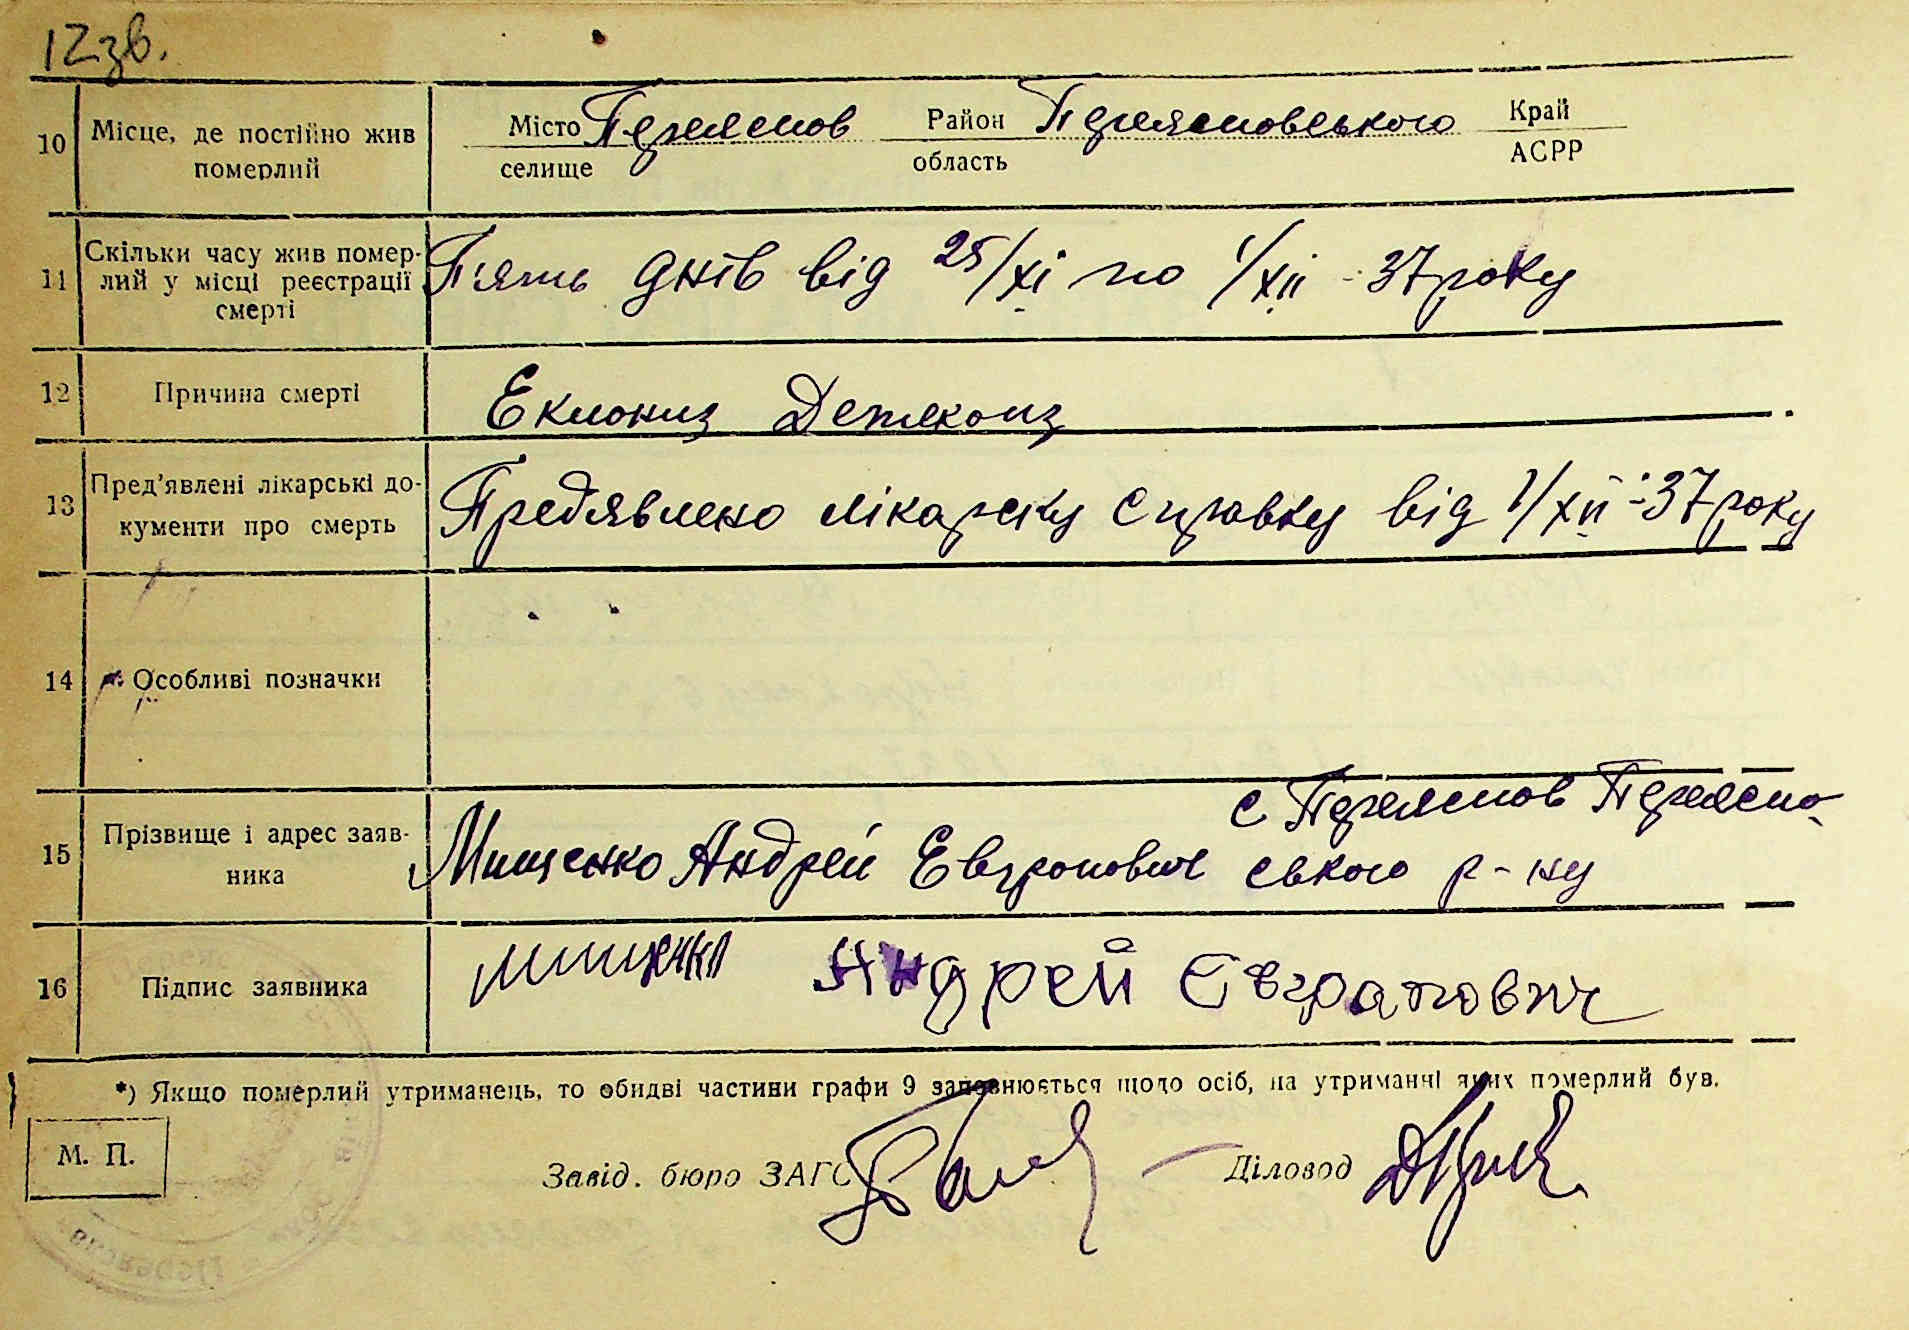 12зв.
10 Місце, де постійно жив померлий
Місто Переяслов Район Переясловського Край
селище область АСРР
11 Скільки часу жив помер-
лий у місці реєстрації
смерті
Пять днів від 25/XI по 1/XII - 37 року
12 Причина смерті
13 Пред'явлені лікарські до-
кументи про смерть
Предявлено лікарську справку від 1/XII - 37 року
14 Особливі позначки
15 Прізвище і адрес заяв-
ника
с Переяслов Переясло-
Мищенко Андрей Евграпович ського р-ну
16 Підпис заявника
Мищенко Андрей Євграпович
*) Якщо померлий утриманець, то обидві частини графи 9 заповнюється щодо осіб, на утриманні яких померлий був.
М. П.
Завід. бюро ЗАГС Діловод